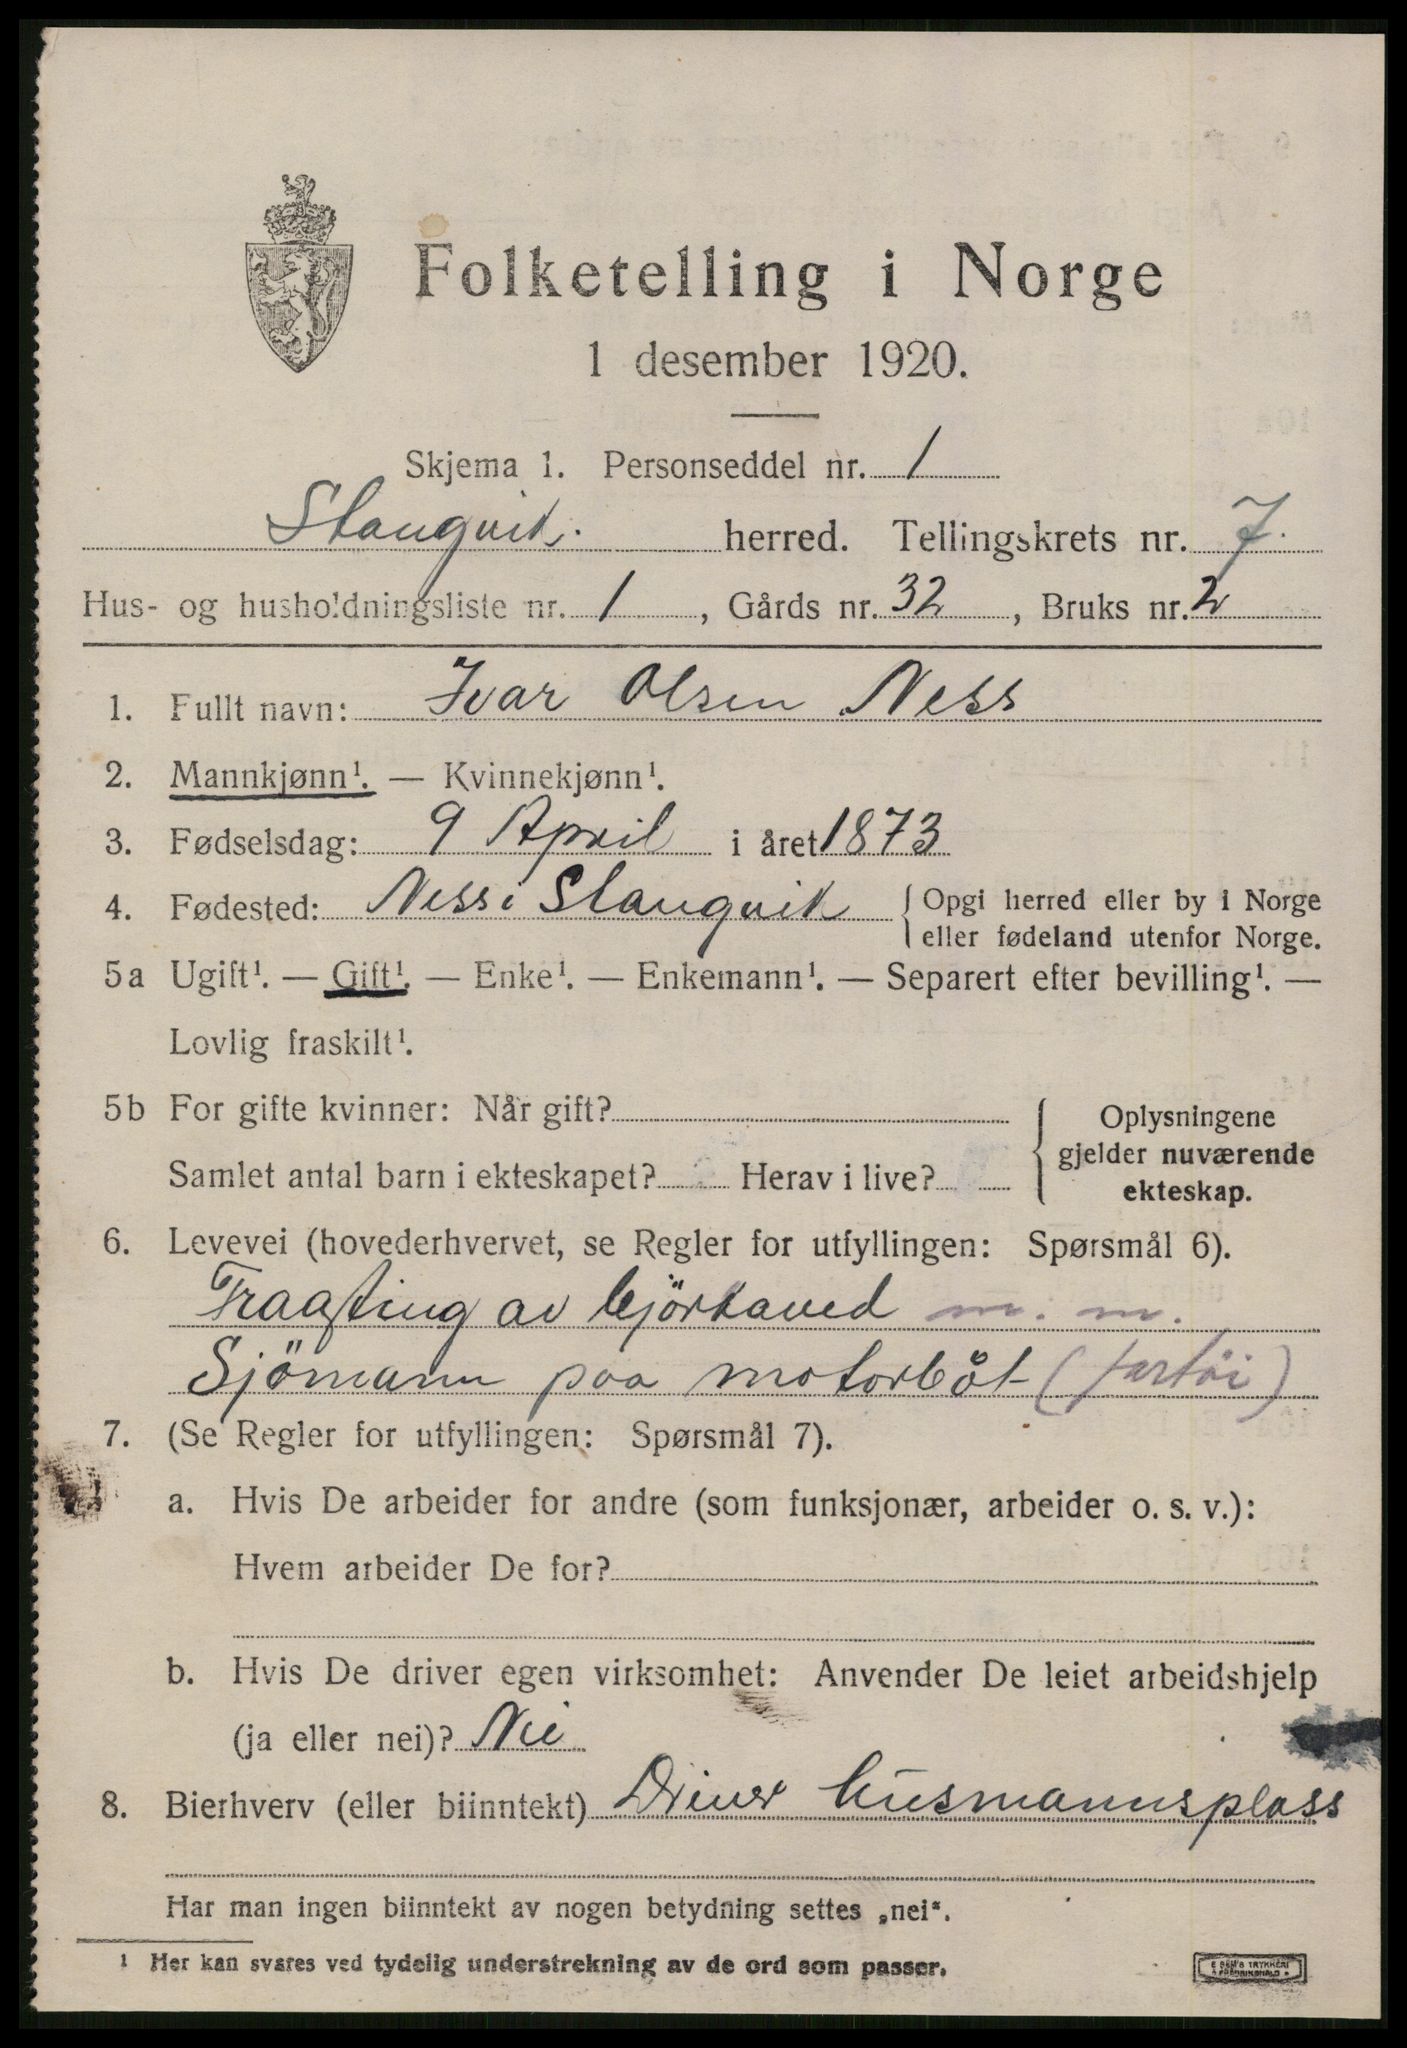 Folketelling i Norge
1 desember 1920.
Skjema 1. Personseddel nr. 1
Stangvik. herred. Tellingskrets nr. 7.
Hus- og husholdningsliste nr. 1, Gårds nr. 32, Bruks nr. 2
1. Fullt navn: Ivar Olsen Ness
2. Mannkjønn¹. — Kvinnekjønn¹.
3. Fødselsdag: 9 April i året 1873
4. Fødested: Ness i Stangvik { Opgi herred eller by i Norge
eller fødeland utenfor Norge.
5a Ugift¹. — Gift¹. — Enke¹. — Enkemann¹. — Separert efter bevilling¹. —
Lovlig fraskilt¹.
5b For gifte kvinner: Når gift?
Samlet antal barn i ekteskapet? Herav i live?
{ Oplysningene
gjelder nuværende
ekteskap.
6. Levevei (hovederhvervet, se Regler for utfyllingen: Spørsmål 6).
Fragting av bjørkaved m. m.
Sjömann paa motorbåt (fartöi)
7. (Se Regler for utfyllingen: Spørsmål 7).
a. Hvis De arbeider for andre (som funksjonær, arbeider o. s. v.):
Hvem arbeider De for?
b. Hvis De driver egen virksomhet: Anvender De leiet arbeidshjelp
(ja eller nei)? Nei
8. Bierhverv (eller biinntekt) Driver husmannsplass
Har man ingen biinntekt av nogen betydning settes „nei“.
¹ Her kan svares ved tydelig understrekning av de ord som passer.
E SEM'S TRYKKERI
FREDRIKSHALD